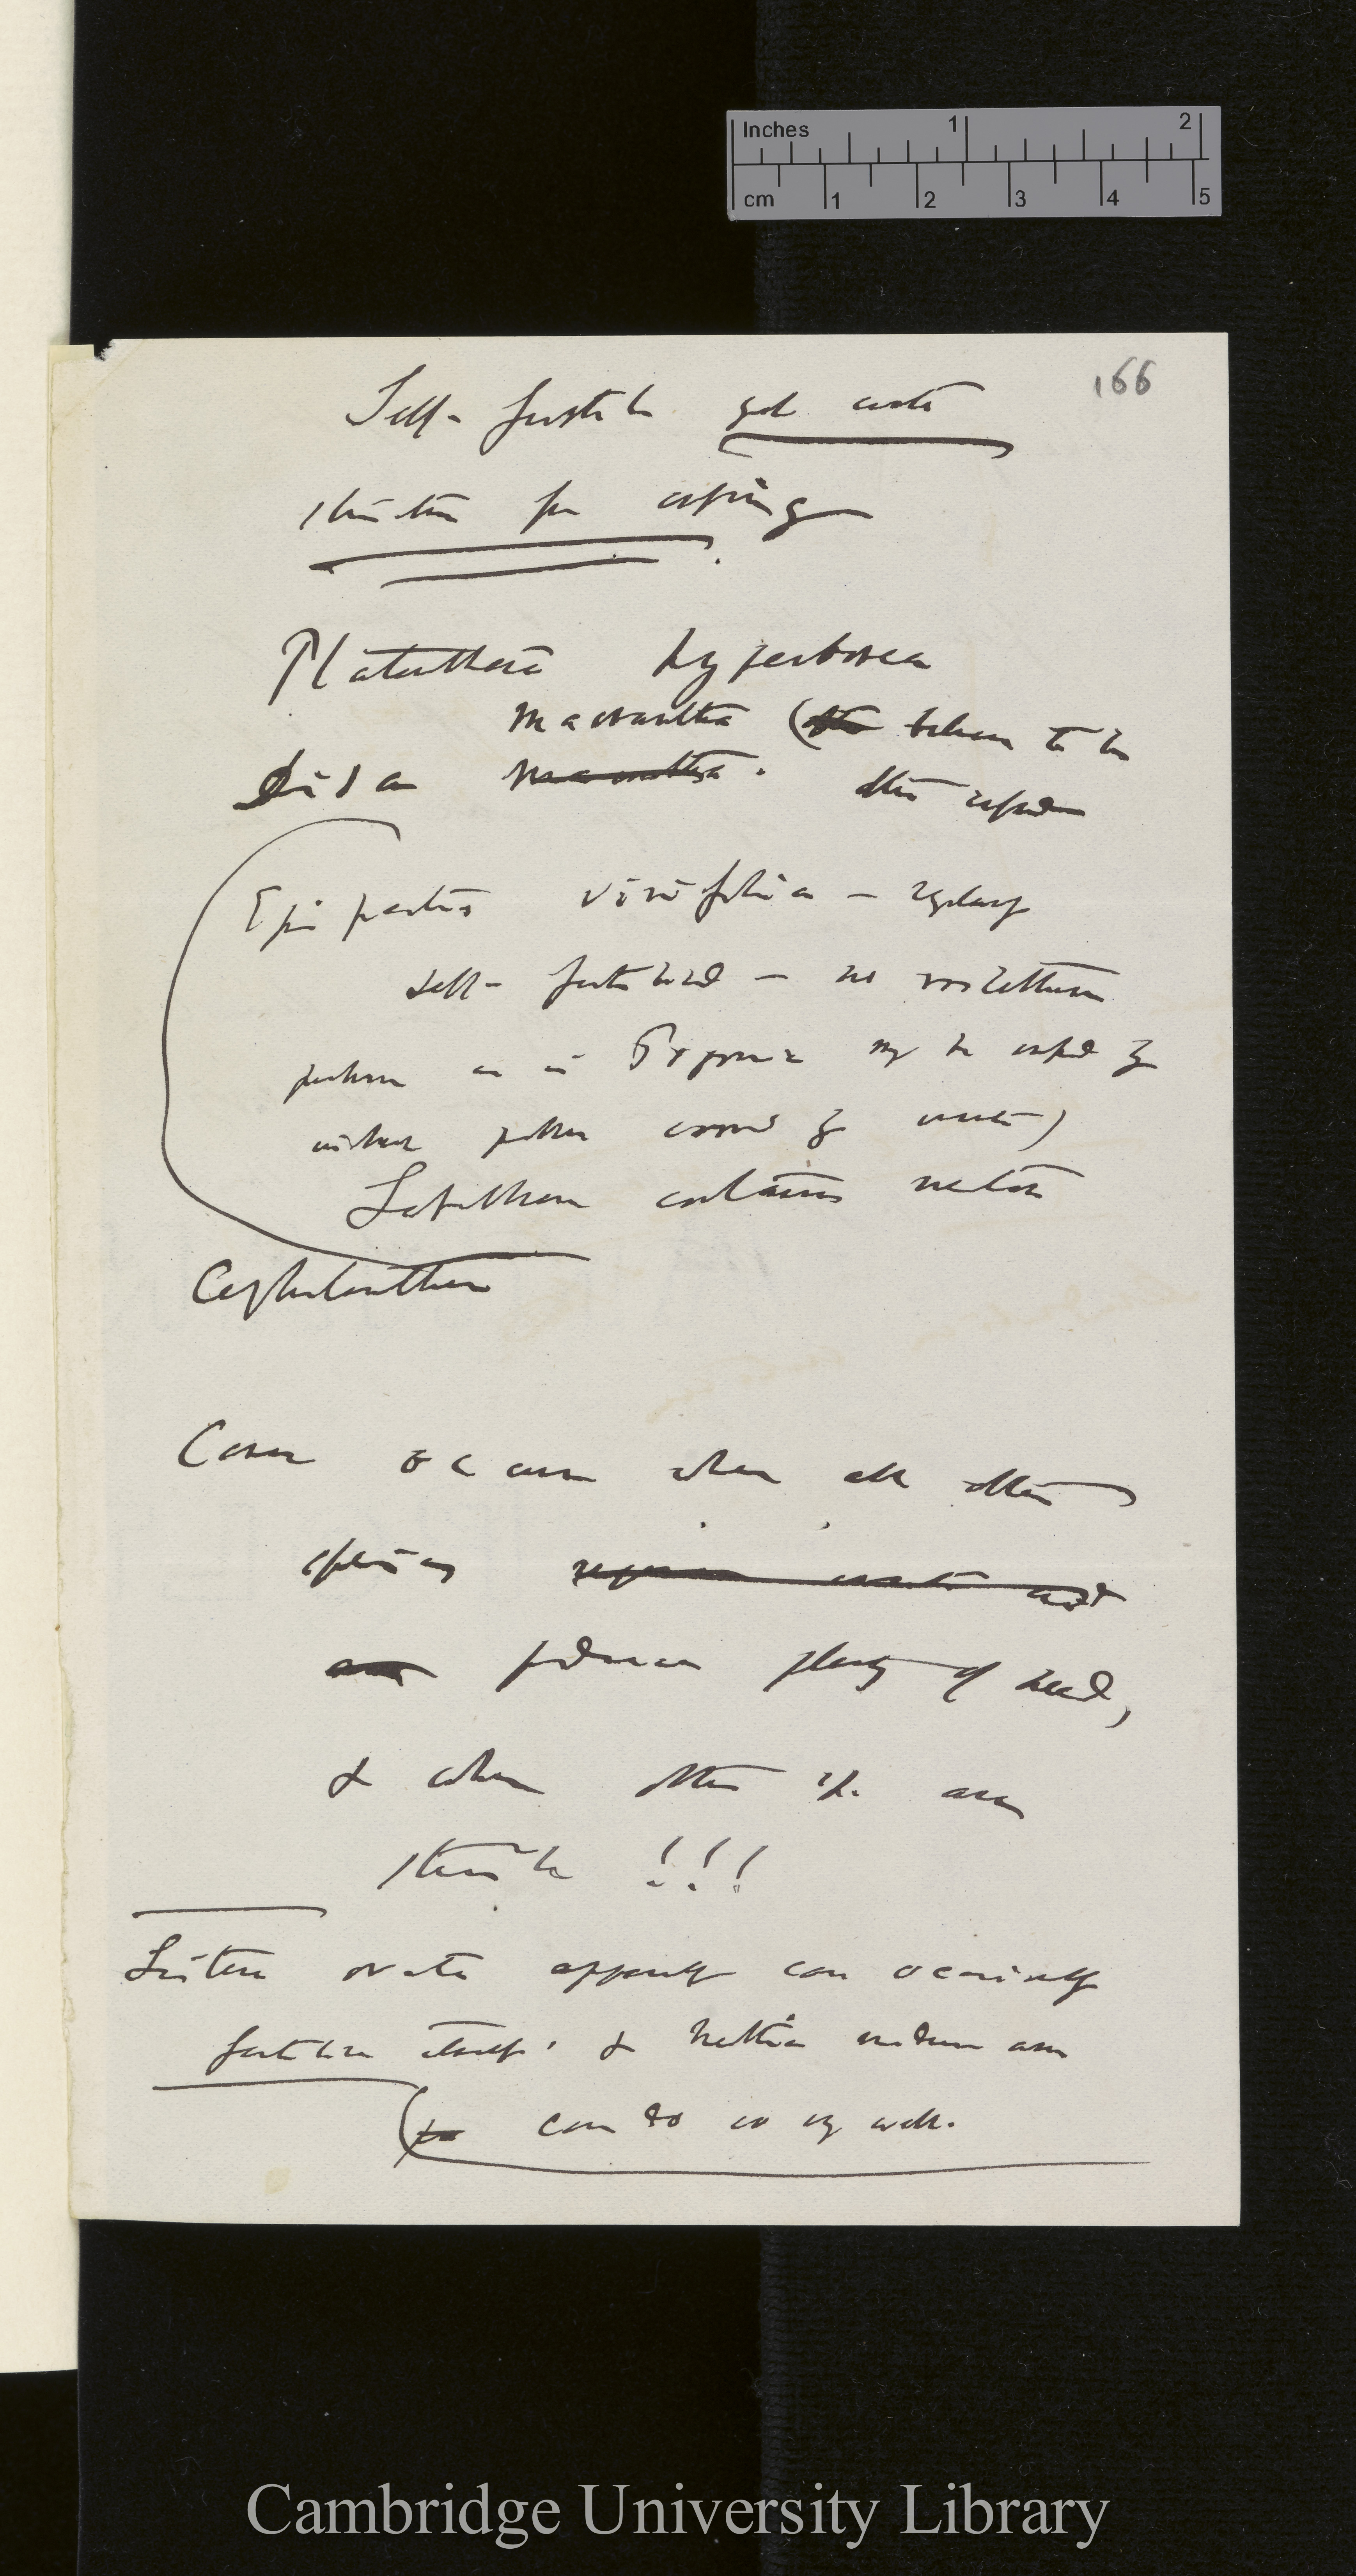 Inches 1 2
cm 1 2 3 4 5
166
Self-fertile yet
structure for crossing
Platanthera hyperborea
macrantha ( believe to be
Disa macrantha. often
Epipactis viridiflora — regularly
self-fertilised — no rostellum
perhaps as in may be crossed by
without pollen by insects)
Labellum contains nectar
Cephalanthera
Cases occur when all other
species
produce plenty of seed,
& when other sp. are
sterile !!!
Listera ovata apparently can occasionally
fertilise itself. & Neottia nidus avis
can do so very well.
Cambridge University Library